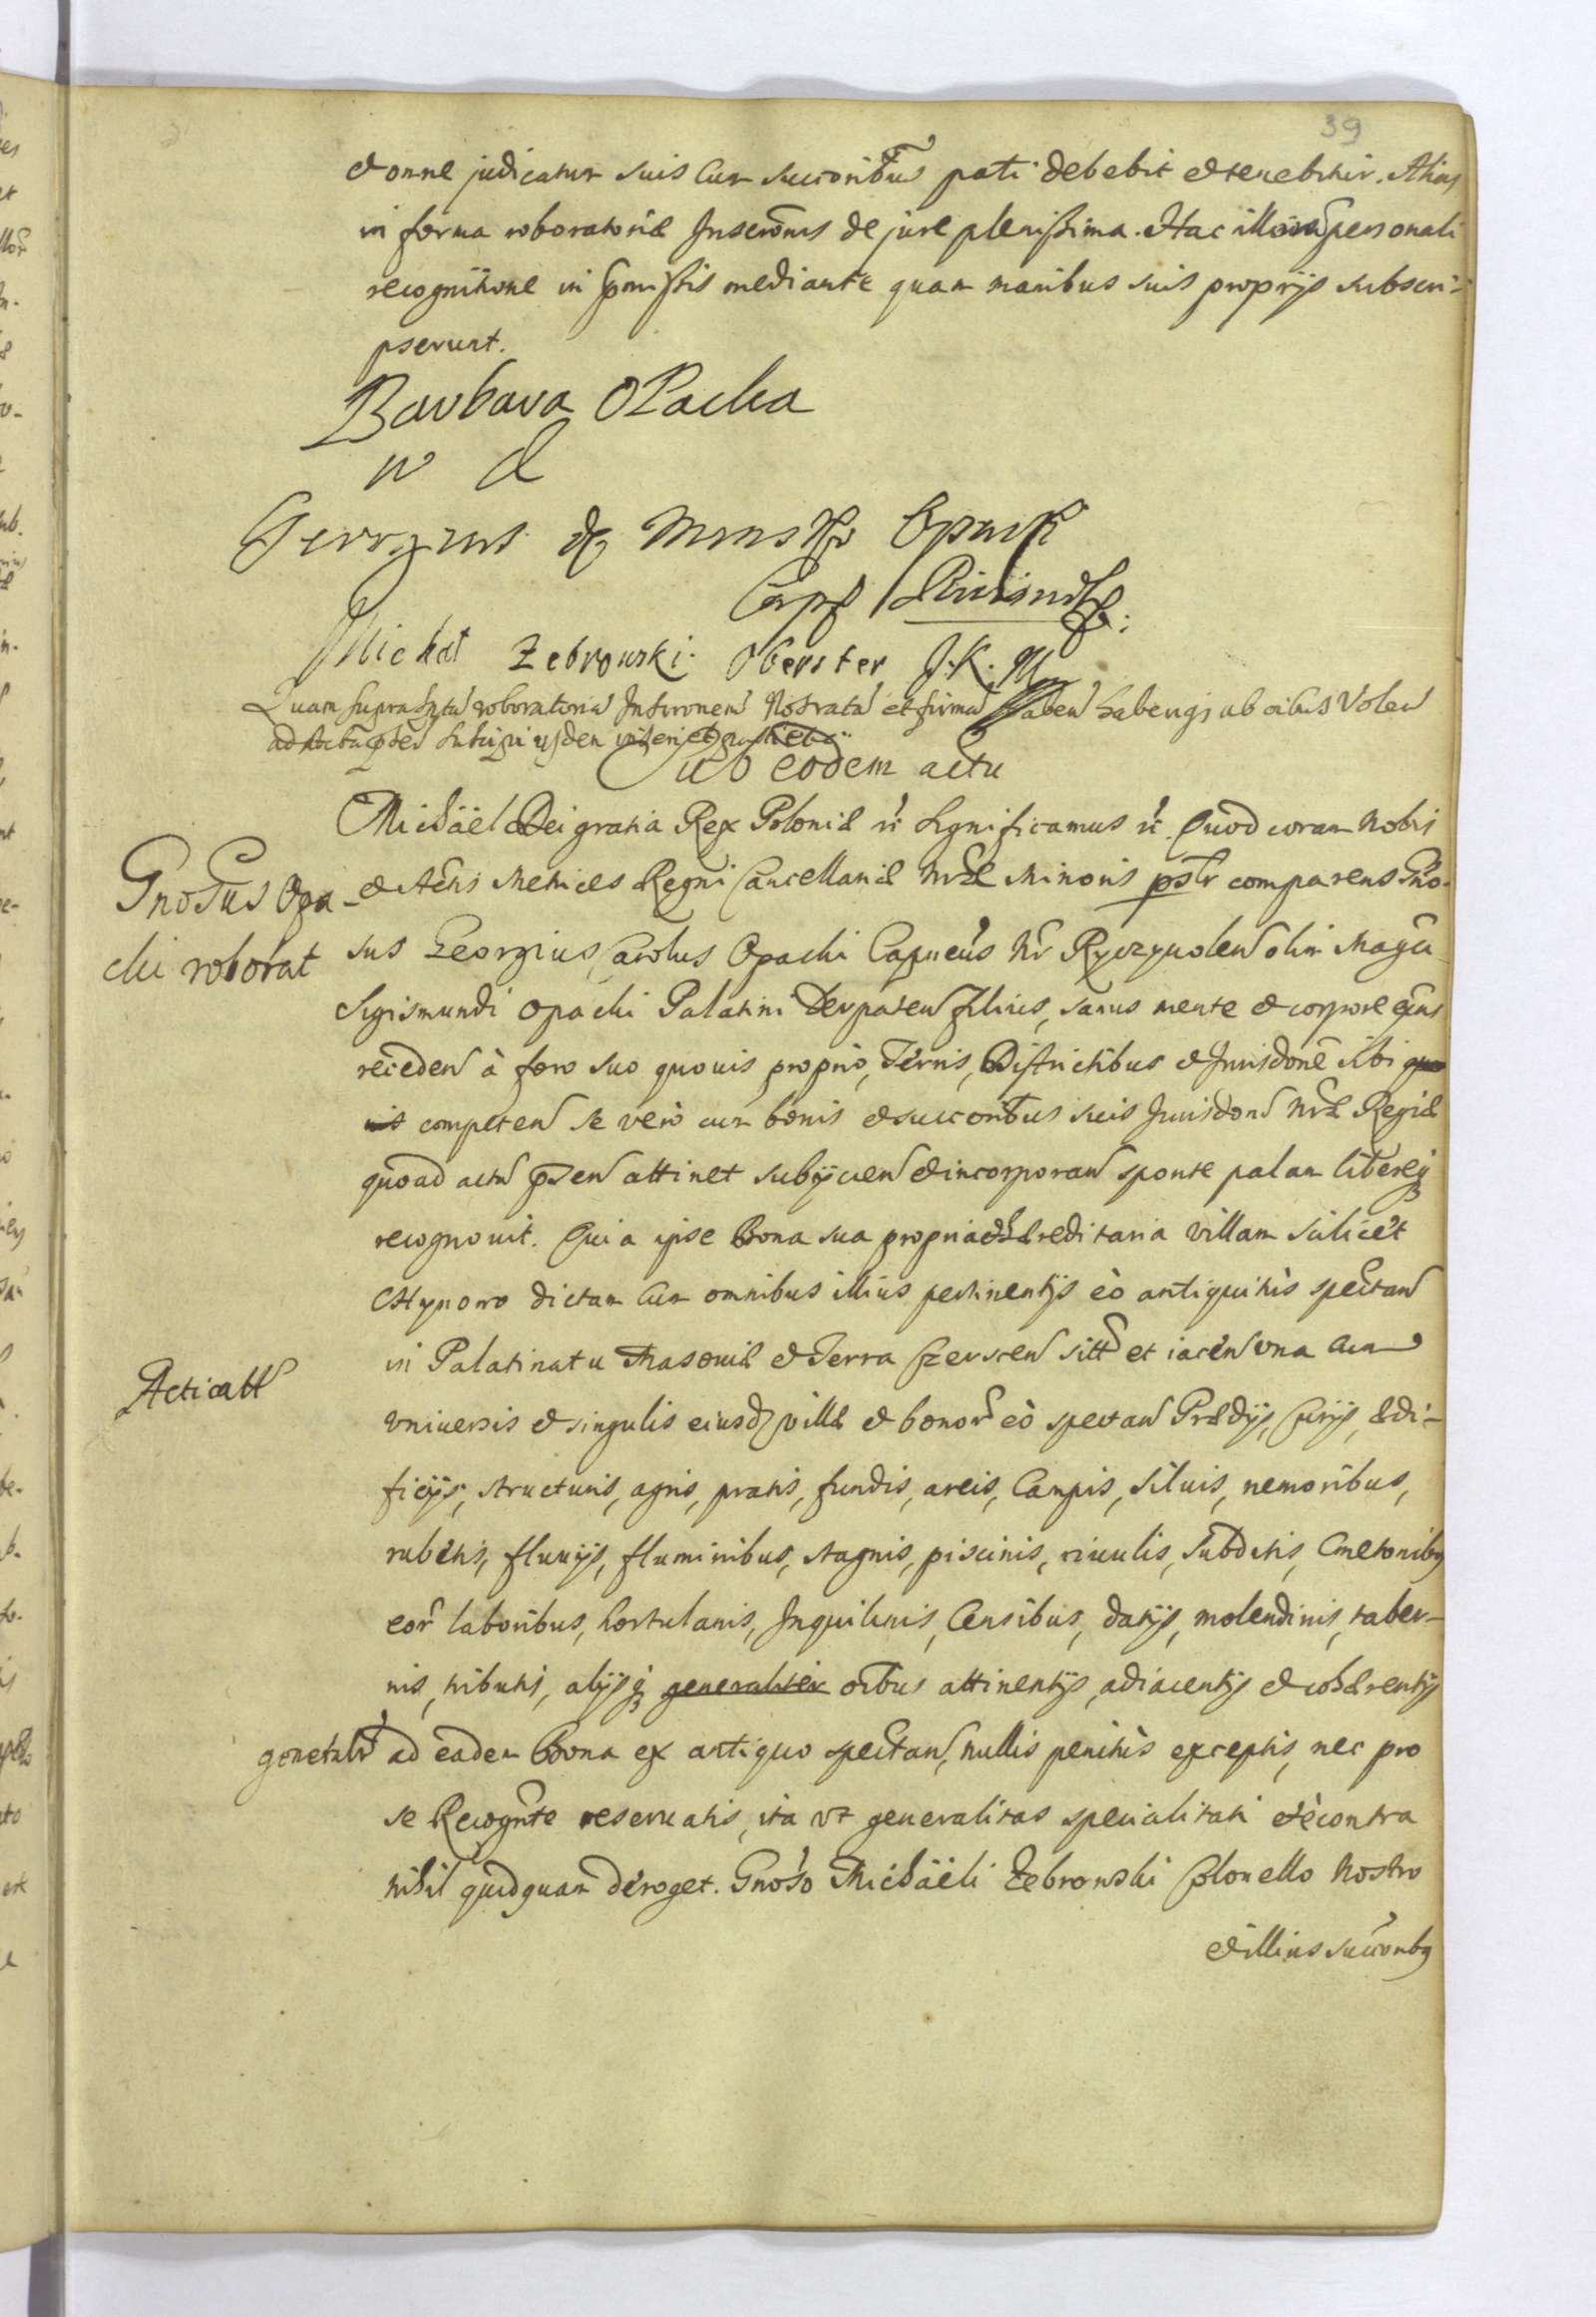 39
et omne judicatum suis cum succoribus pati debebit et tenebitur. Alias
in forma roboratoriæ Inscronis de jure plenissima. Hac illorum personali
recognitione in pmissis mediante quam manibus suis proprijs subscri-
pserunt.
Barbara OPacka
w d
de Minsko Opacki
Capt
Michał Zebrowski Oberster J. K. M
Quam suprasptã roboratoriã Inscronem Nos ratã et firmã haben habeurgz ab oibus volen
ad Acta
Sub eodem actu
Michaël Dei gratia Rex Poloniæ etc Significamus etc Quod coram Nobis
Gnosus Opa-
cki roborat
et Actis Metrices Regni Cancellariæ nræ Minoris pslr comparens Gno-
sus Georgius Carolus Opacki Capneus Nr Ryczywolen olim Magci
Sigismundi Opacki Palatini Derpaten filius, sanus mente et corpore exns
receden à foro suo quovis proprio, Terris, Districtibus et Jurisdone sibi quo
vis competen se vero cum bonis et succoribus suis Jurisdoni Nræ Regiæ
quoad actũ pzen attinet subijcien et incorporan sponte palam libereq
recognovit. Quia ipse Bona sua propria et hæreditaria villam scilicet
Hynowo dictam cum omnibus illius pertinentijs eò antiquitùs spectan
in Palatinatu Masoviæ et Terra Czerscen sitt et iacen una cum
Acticatt
vniversis et singulis eiusd villæ et bonor eò spectan Prædijs, Curijs, ædi-
ficijs, structuris, agris, pratis, fundis, areis, Campis, silvis, nemoribus,
rubetis, fluvijs, fluminibus, stagnis, piscinis, rivulis, subditis, Cmetonibq
eor laboribus, hortulanis, Inquilinis, Censibus, datijs, molendinis, taber-
nis, tributis, alijsq generaliter oibus attinentijs, adiacentijs et cohærentijs
generalr ad eadem Bona ex antiquo spectan, nullis penitùs exceptis, nec pro
se Recognte reservatis, ita vt generalitas specialitati et è contra
nihil quidquam deroget. Gnoso Michaëli Zebrowski Colonello Nostro
et illius succoribq